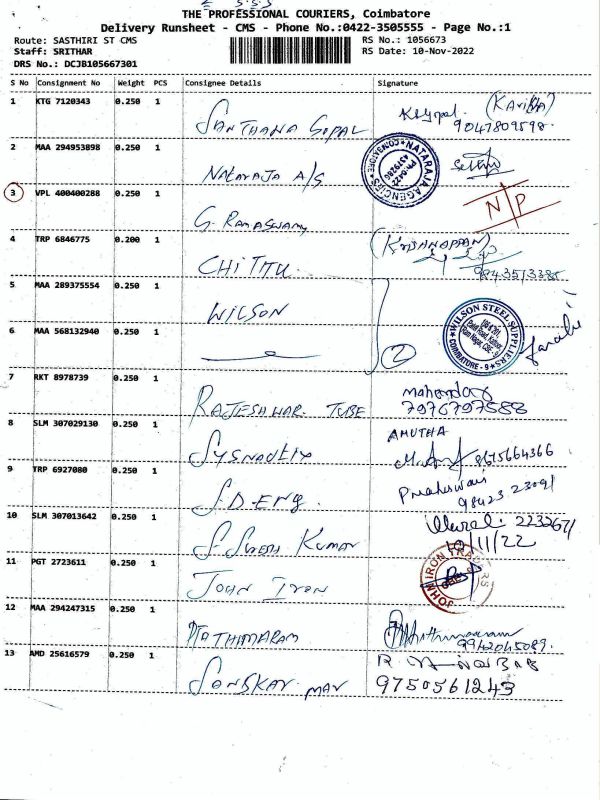 THE PROFESSIONAL COURIERS, Coimbatore
Delivery Runsheet - CMS - Phone No.:0422-3505555 - Page No.:1
Route: SASTHIRI ST CMS
RS No.: 1056673
Staff: SRITHAR
RS Date: 10-Nov-2022
DRS No.: DCJB105667301
S No Consignment No Weight PCS Consignee Details Signature
1 KTG 7120343 0.250 1
SANTHANA GOPAL
9047809598
2 MAA 294953898 0.250 1
NATARAJA A/S
NATARAJA AGENCIES
COIMBATORE
3 VPL 400400288 0.250 1
G. RAMASWAMY
N/P
4 TRP 6846775 0.200 1
CHITTU
5 MAA 289375554 0.250 1
WILSON
WILSON STEEL SUPPLIERS
COIMBATORE - 9
6 MAA 568132940 0.250 1
2
7 RKT 8978739 0.250 1
RAJESHWAR TUBE
7976797588
8 SLM 307029130 0.250 1
AMUTHA
8675664366
9 TRP 6927080 0.250 1
S.D. ENG.
98423 23091
10 SLM 307013642 0.250 1
S SURESH KUMAR
Murali 2232671
10/11/22
11 PGT 2723611 0.250 1
JOHN IRON
JOHN IRON TRADERS
12 MAA 294247315 0.250 1
9942045089
13 AMD 25616579 0.250 1
9750561243